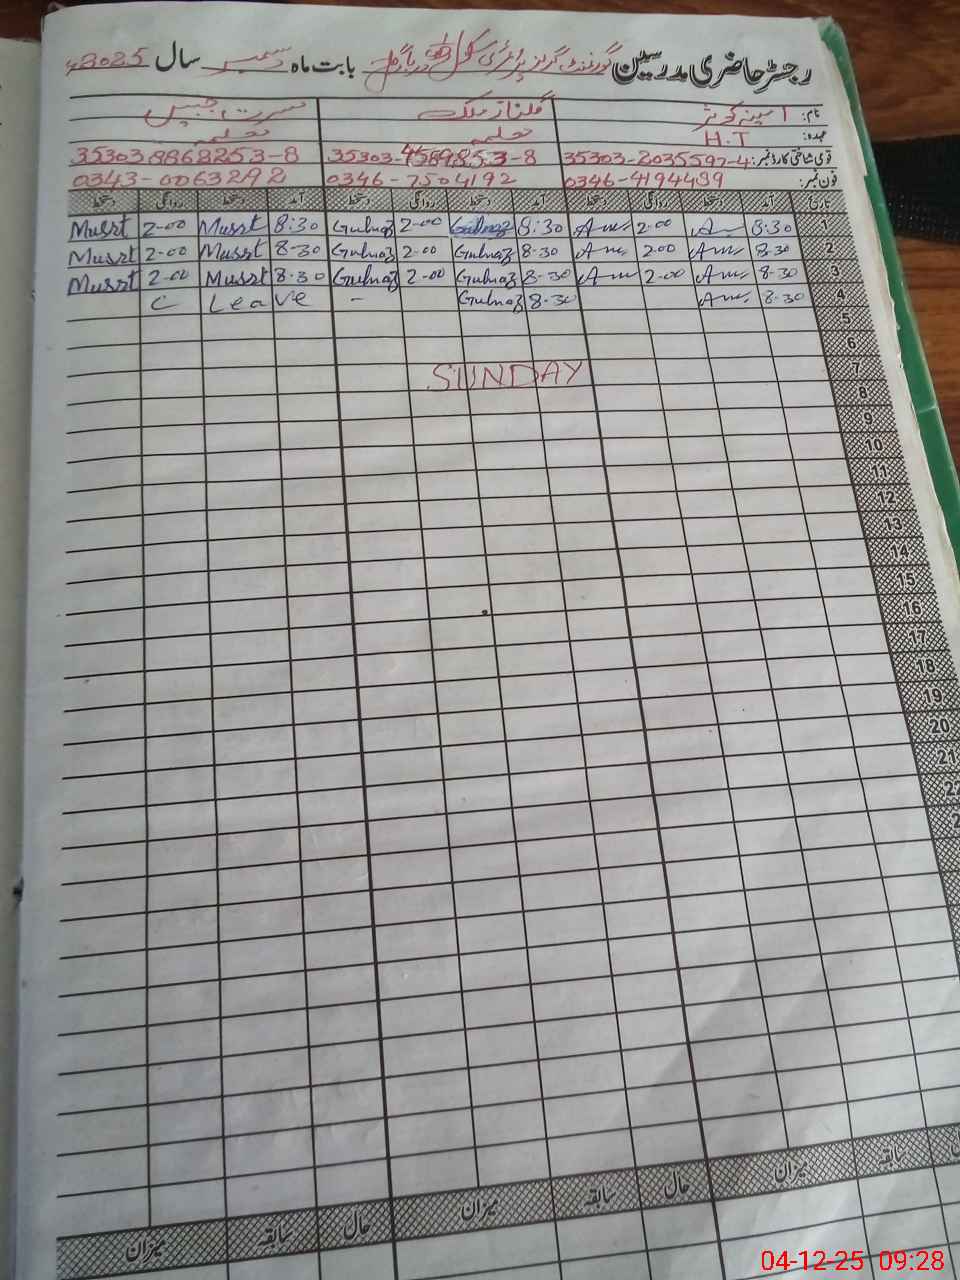 رجسٹر حاضری مدرسین گورنمنٹ گرلز پرائمری سکول بابت ماہ دسمبر سال 2025
نام: امینہ کوثر گلناز ملک مسرت جبیں
عہدہ: H.T معلمہ معلمہ
قومی شناختی کارڈ نمبر: 35303-2035597-4 35303-4589853-8 353038868253-8
فون نمبر: 0346-4194439 0346-7504192 0343-0063292
تاریخ آمد دستخط روانگی دستخط آمد دستخط روانگی دستخط آمد دستخط روانگی دستخط
1 8:30 2-00 8:30 Gulnaz 2-00 Gulnaz 8:30 Musrt 2-00 Musrt
2 8-30 2-00 8-30 Gulnaz 2-00 Gulnaz 8-30 Musrt 2-00 Musrt
3 8-30 2-00 8-30 Gulnaz 2-00 Gulnaz 8-30 Musrt 2-00 Musrt
4 8-30 8-30 Gulnaz - C Leave
5
6
7 SUNDAY
8
9
10
11
12
13
14
15
16
17
18
19
20
21
22
میزان سابقہ حال میزان سابقہ حال میزان سابقہ
04-12-25 09:28